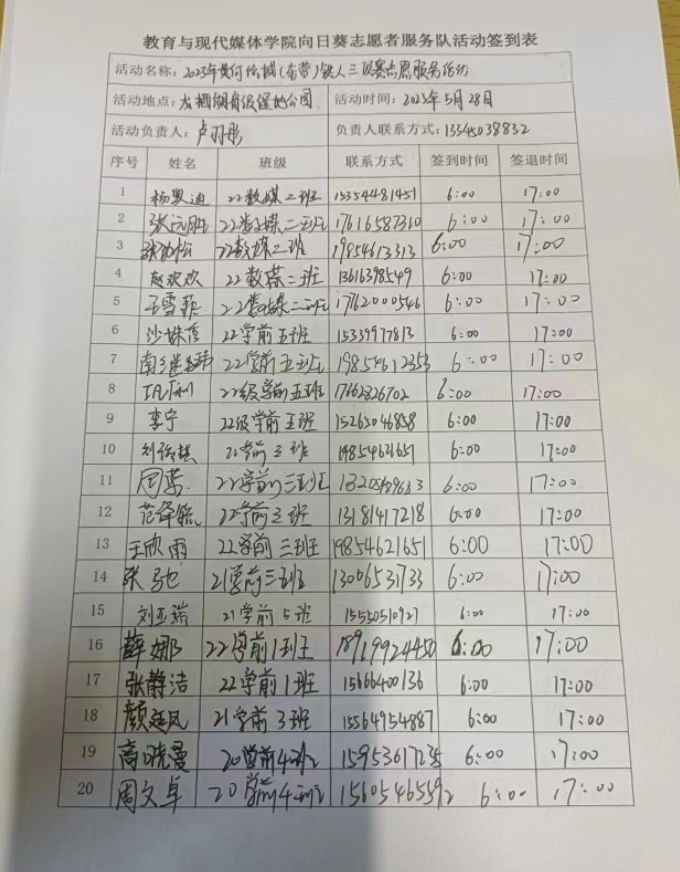 教育与现代媒体学院向日葵志愿者服务队活动签到表
活动名称：2023年黄河口城(东营)铁人三项赛志愿服务活动
活动地点：龙栖湖省级湿地公园 活动时间：2023年5月28日
活动负责人：卢羽彤 负责人联系方式：13345038832
序号 姓名 班级 联系方式 签到时间 签退时间
1 22数媒二班 15354481451 6:00 17:00
2 22数媒二班 17616587310 6:00 17:00
3 22数媒二班 19854613313 6:00 17:00
4 赵欢欢 22数媒二班 13616398549 6:00 17:00
5 王雪菲 22数媒二班 17762000546 6:00 17:00
6 22学前五班 15339977813 6:00 17:00
7 22学前五班 19854612353 6:00 17:00
8 22级学前五班 17662826702 6:00 17:00
9 李宁 22级学前五班 15263046858 6:00 17:00
10 21学前3班 19854621651 6:00 17:00
11 周蕊 22学前三班 6:00 17:00
12 范泽毓 22学前3班 13181417218 6:00 17:00
13 王欣雨 22学前三班 19854621651 6:00 17:00
14 张驰 21学前三班 13006531733 6:00 17:00
15 刘亚瑞 21学前5班 15550510921 6:00 17:00
16 薛娜 22学前1班 18919924450 6:00 17:00
17 张静洁 22学前1班 15666400136 6:00 17:00
18 颜廷凤 21学前3班 15564954887 6:00 17:00
19 高晓曼 20学前4班 15953617235 6:00 17:00
20 周文卓 20学前4班 15605465592 6:00 17:00